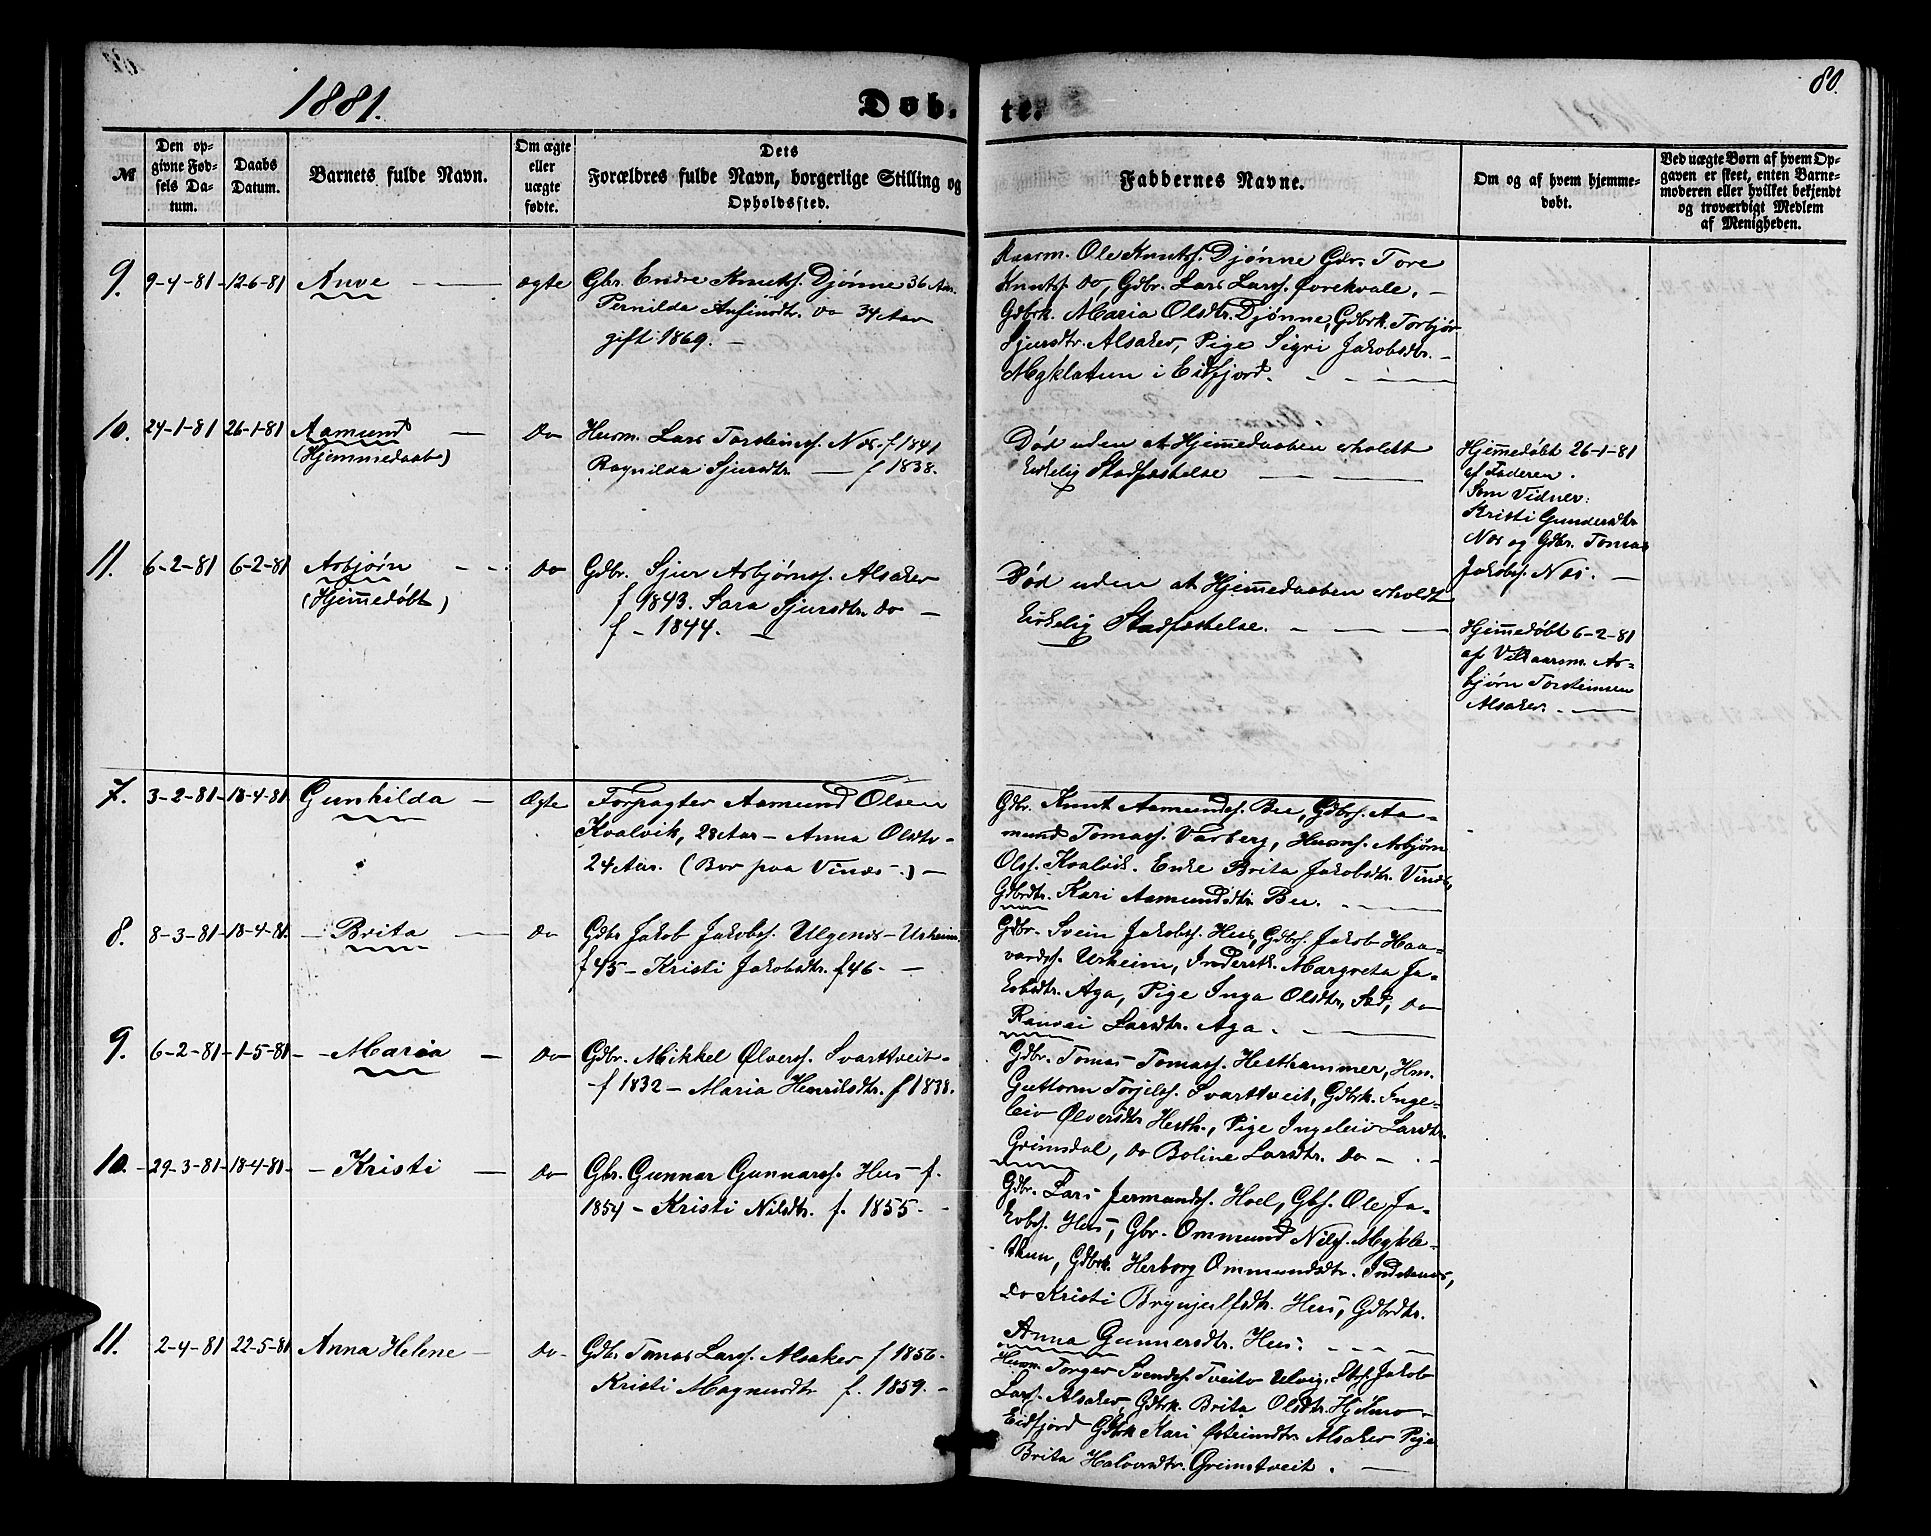 1881.
Døb-
te.
80.
№
Den op-
givne Fød-
sels Da-
tum.
Daabs
Datum.
Barnets fulde Navn.
Om ægte
eller
uægte
fødte.
Dets
Forældres fulde Navn, borgerlige Stilling og
Opholdssted.
Faddernes Navne.
Om og af hvem hjemme-
døbt.
Ved uægte Børn af hvem Op-
gaven er skeet, enten Barne-
moderen eller hvilket bekjendt
og troværdigt Medlem
af Menigheden.
9. 9-4-81 12-6-81 Anve ægte
Gbr. Endre Knutss. Djønne 36 Aar.
Pernilda Anfinsdtr. do 34 Aar
gift 1869.
Kaarm. Ole Knutss. Djønne Gdr. Tore
Knutss do, Gdbr. Lars Larss.
Gdbrk. Maria Olsdtr. Djønne, Gdbrk. Torbjør
Sjursdtr. Alsaker, Pige Sigri Jakobsdtr.
Myklatun i Eidfjord.
10. 24-1-81 26-1-81 Aamund
(Hjemmedaab)
do
Husm. Lars Torsteinss. Næs. f 1841
Ragnilda Sjursdtr. — f 1838.
Død uden at Hjemmedaaben erholdt
kirkelig Stadfæstelse
Hjemmedøbt 26-1-81
af Faderen.
Som Vidner:
Kristi Gundersdtr
Næs og Gdbr. Tomas
Jakobs. Næs.
11. 6-2-81 6-2-81 Asbjørn
(Hjemmedøbt)
do
Gdbr. Sjur Asbjørnss. Alsaker
f 1843. Sara Sjursdtr. do —
f - 1844.
Død uden at Hjemmedaaben erholdt
kirkelig Stadfæstelse.
Hjemmedøbt 6-2-81
af Vilkaarsm. As-
bjørn Torsteinsen
Alsaker.
7. 3-2-81 18-4-81 Gunhilda — Ægte
Forpagter Aamund Olsen
Kvalvik, 28 Aar — Anna Olsdtr
24 Aar. (Bor paa Vinæs.) —
Gdbr. Knut Aamundss. Bu, Gdbrs. Aa-
mund Tomass. Varberg, Husms. Asbjørn
Olss. Kvalvik. Enke Brita Jakobsdtr. Vinæs,
Gdbrdtr. Kari Aamundsdtr Bu.
8. 8-3-81 18-4-81. Brita do
Gdbr Jakob Jakobss. Ulgenæs - Urheim.
f 45 — Kristi Jakobsdtr. f 46.
Gdbr. Svein Jakobss. Hus, Gdbrs. Jakob Haa-
vardss. Urheim, Inderstk. Margreta Ja-
kobsdtr. Aga, Pige Inga Olsdtr, do
Ranvei Larsdtr. Aga.
9. 6-2-81 1-5-81 Maria do
Gdbr. Mikkel Ølverss. Svarttveit
f 1832 — Maria Henriksdtr. f 1838.
Gdbr. Tomas Tomass. Hesthammer, Hm.
Guttorm Torjelss. Svarttveit, Gdbrk. Inge-
leiv Ølversdtr Hesth., Pige Ingeleiv Larsdtr.
Grimsdal, do Boline Larsdtr. do
10. 29-3-81 18-4-81 Kristi — do
Gbr. Gunnar Gunnarss. Hus f.
1854 — Kristi Nilsdtr. f. 1855.
Gdbr. Lars Jermundss. Hoel, Gbs. Ole Ja-
kobss. Hus, Gbr. Ommund Nilss. Mykle-
thun, Gdbrk. Herborg Ommundsdtr.
do Kristi Brynjulfsdtr. Hus, Gdbrdtr.
Anna Gunnersdtr. Hus.
11. 2-4-81 22-5-81 Anna Helene do
Gdbr Tomas Larss. Alsaker f 1856
Kristi Magnusdtr f. 1859.
Husm. Torger Svendss. Tveito Ulvig, Jakob
Larss. Alsaker, Gdbrk. Brita Olsdtr. Hjelmo
Eidfjord Gdbrk Kari Østeinsdtr. Alsaker Pige
Brita Halvorsdtr. Grimstveit.